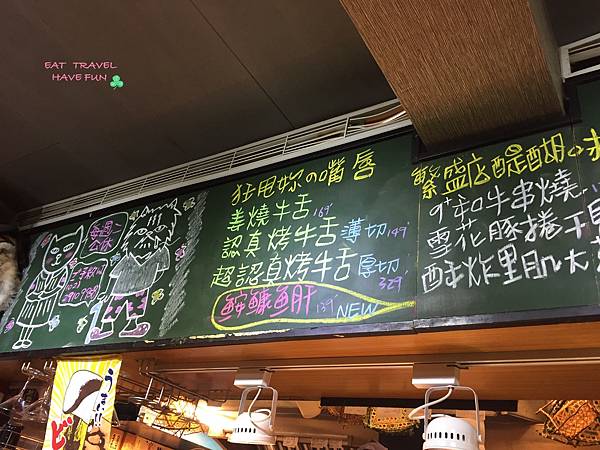 EAT TRAVEL
HAVE FUN
每週二
公休
狂甩妳の嘴唇
善燒牛舌 169
認真烤牛舌 薄切 149
超認真烤牛舌 厚切 329
鮟鱇魚肝 139 NEW
繁盛店醍醐
和牛串燒
雪花豚捲
酥炸里肌
うまい
ど